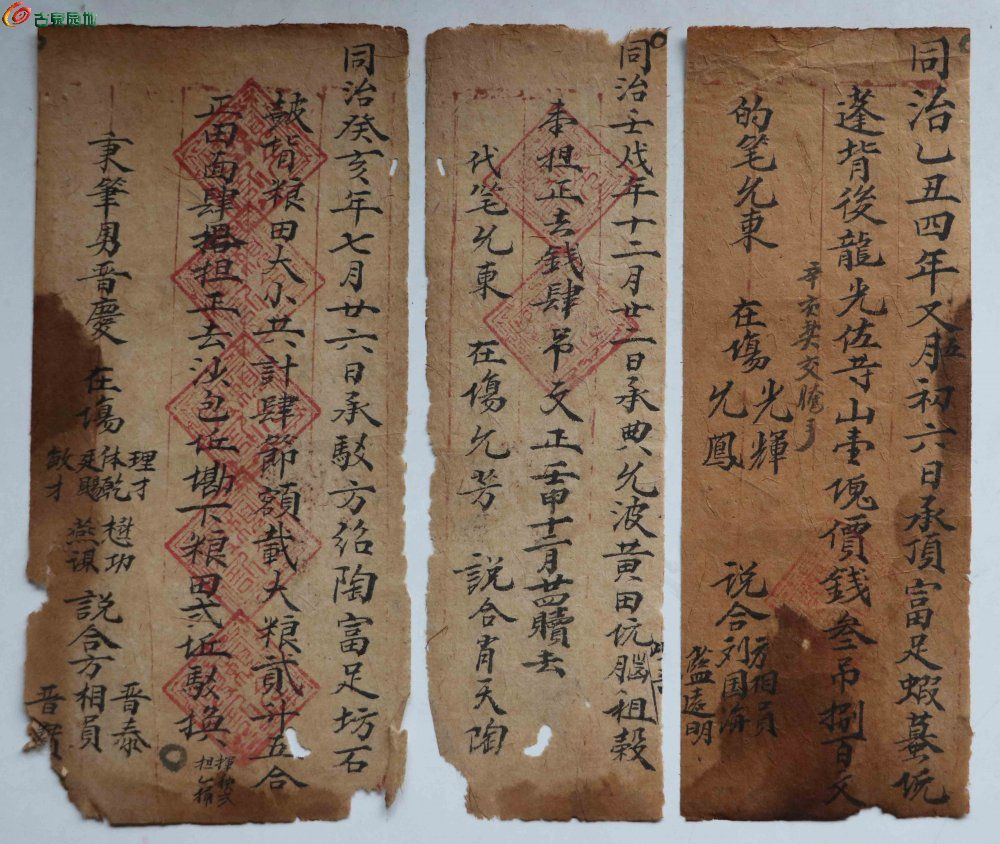 古泉园地
同治乙丑四年又五月初六日承頂富足蝦蟇坑
蓬背後龍光佐等山壹塊價錢叁吊捌百文
辛亥
的笔允東 在塲光輝 允鳳 説合方相員 刘国海 藍遠明
同治壬戌年十二月廿一日承典允波黄田坑腦租穀
本担正去錢肆吊文正壬申十二月廿四贖去
代笔允東 在塲允芳 説合肖天陶
同治癸亥年七月廿六日承馭方紹陶富足坊石
皷背粮田大小共計肆節額載大粮貳升五合
正田面肆担正去沙包坵墈下粮田弍坵馭換
秉筆男晋慶 在塲理才 体乾 廷賜 敏才 樾功 燕謀 説合方相員 晋泰